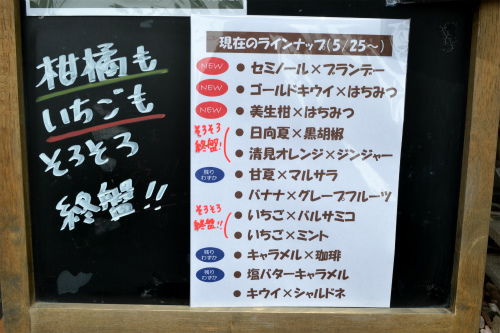 柑橘も
いちごも
そろそろ
終盤!!
現在のラインナップ(5/25～)
NEW ● セミノール×ブランデー
NEW ● ゴールドキウイ×はちみつ
NEW ● 美生柑×はちみつ
そろそろ
終盤!!
● 日向夏×黒胡椒
● 清見オレンジ×ジンジャー
残りわずか ● 甘夏×マルサラ
● バナナ×グレープフルーツ
そろそろ
終盤!!
● いちご×バルサミコ
● いちご×ミント
残りわずか ● キャラメル×珈琲
残りわずか ● 塩バターキャラメル
● キウイ×シャルドネ